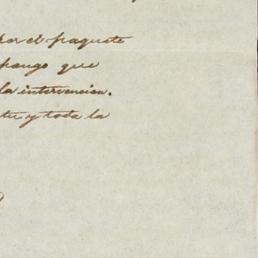 por el paquete
pongo que
la intervencion.
tu y toda la